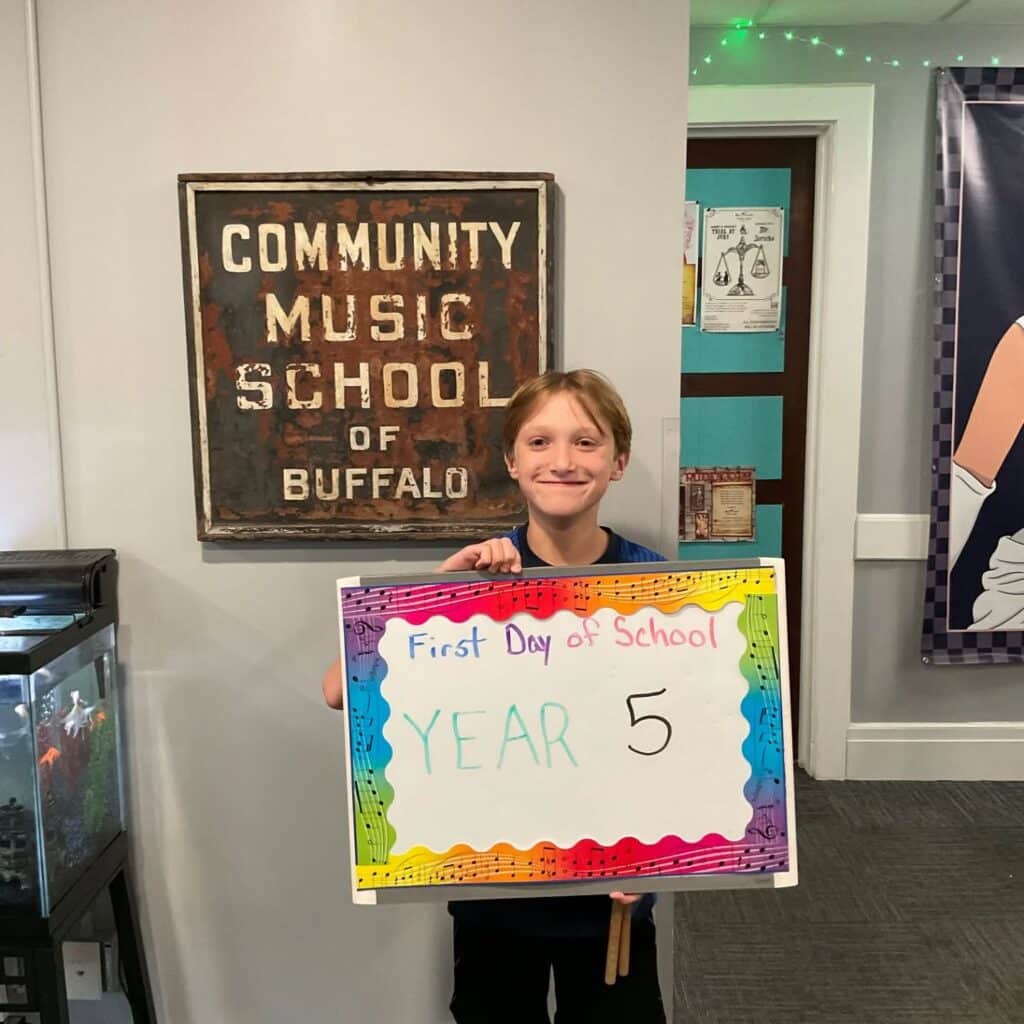 COMMUNITY
MUSIC
SCHOOL
OF
BUFFALO
First Day of School
YEAR 5
TRIAL BY
JURY